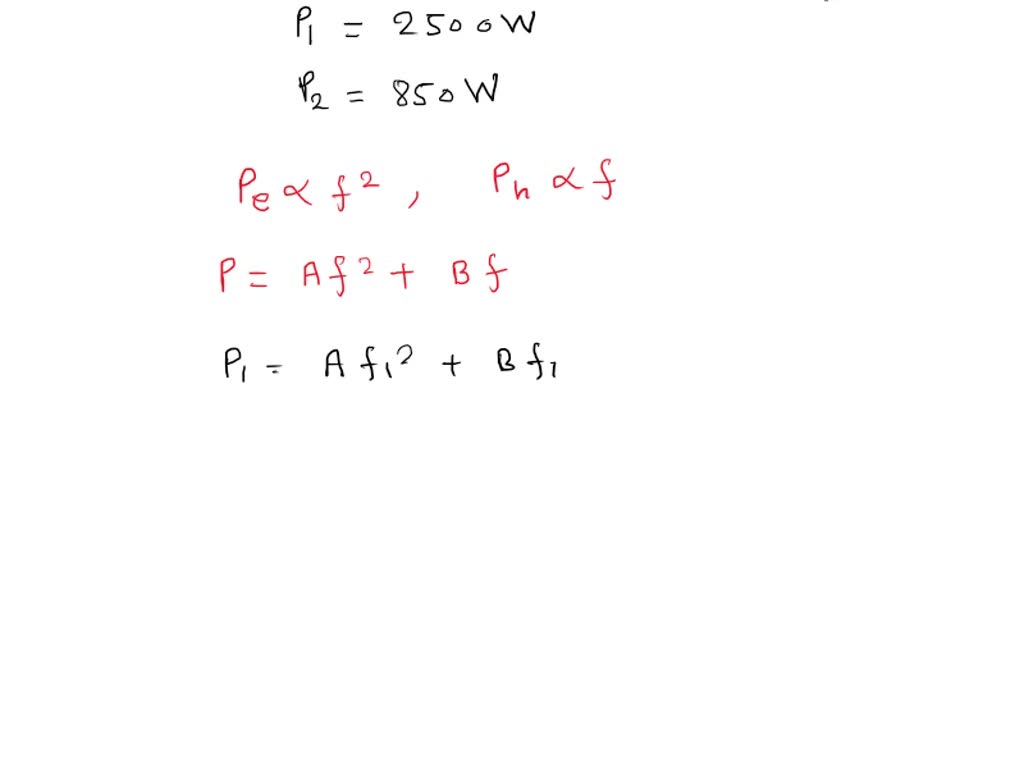 P₁ = 2500W
P₂ = 850W
Pₑ ∝ f², Pₕ ∝ f
P = Af² + Bf
P₁ = A f₁² + B f₁